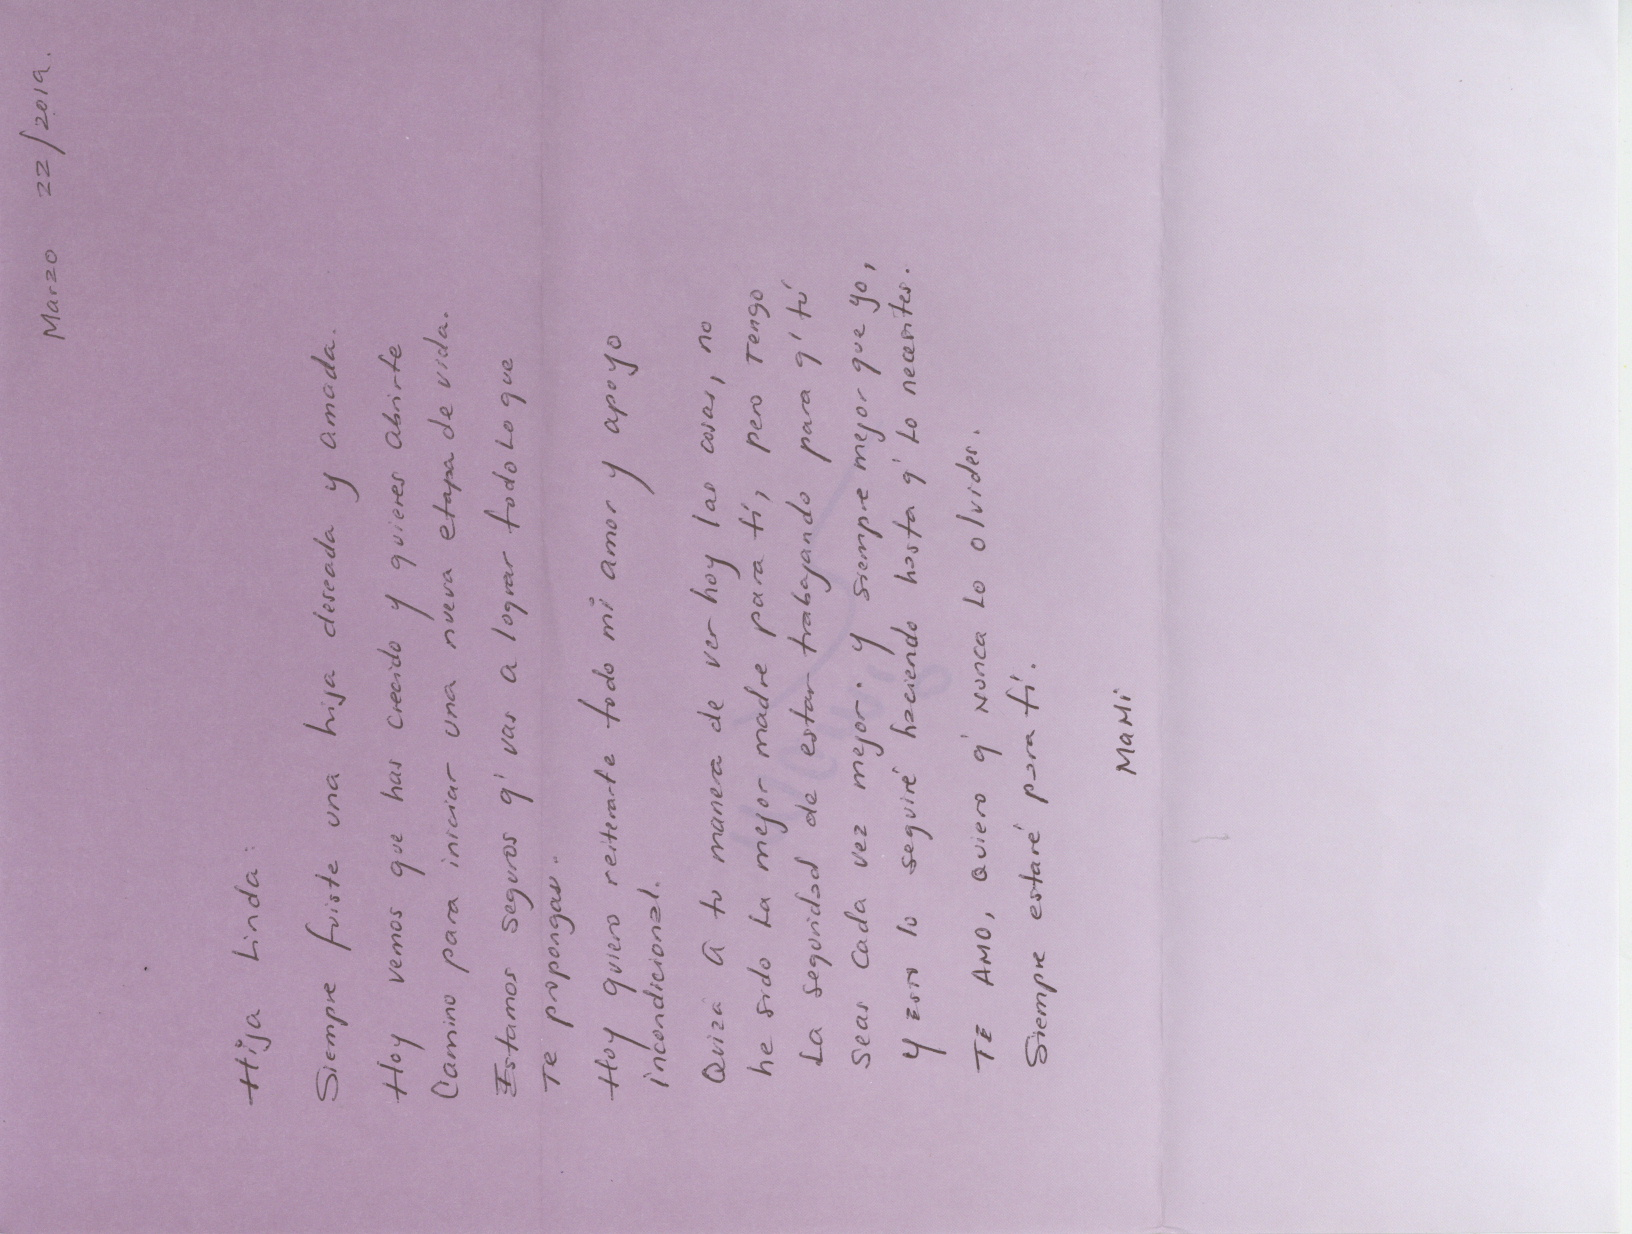 Marzo 22/2019.
Hija Linda:
Siempre fuiste una hija deseada y amada.
Hoy vemos que has crecido y quieres abrirte
Camino para iniciar una nueva etapa de vida.
Estamos seguros q' vas a lograr todo lo que
Te propongas.
Hoy quiero reiterarte todo mi amor y apoyo
incondicional.
Quizá a tu manera de ver hoy las cosas, no
he sido la mejor madre para ti, pero Tengo
La seguridad de estar trabajando para q' tú
seas cada vez mejor. y siempre mejor que yo,
Y esto lo seguiré haciendo hasta q' lo necesites.
TE AMO, Quiero q' nunca lo olvides.
Siempre estaré para ti.
MaMi